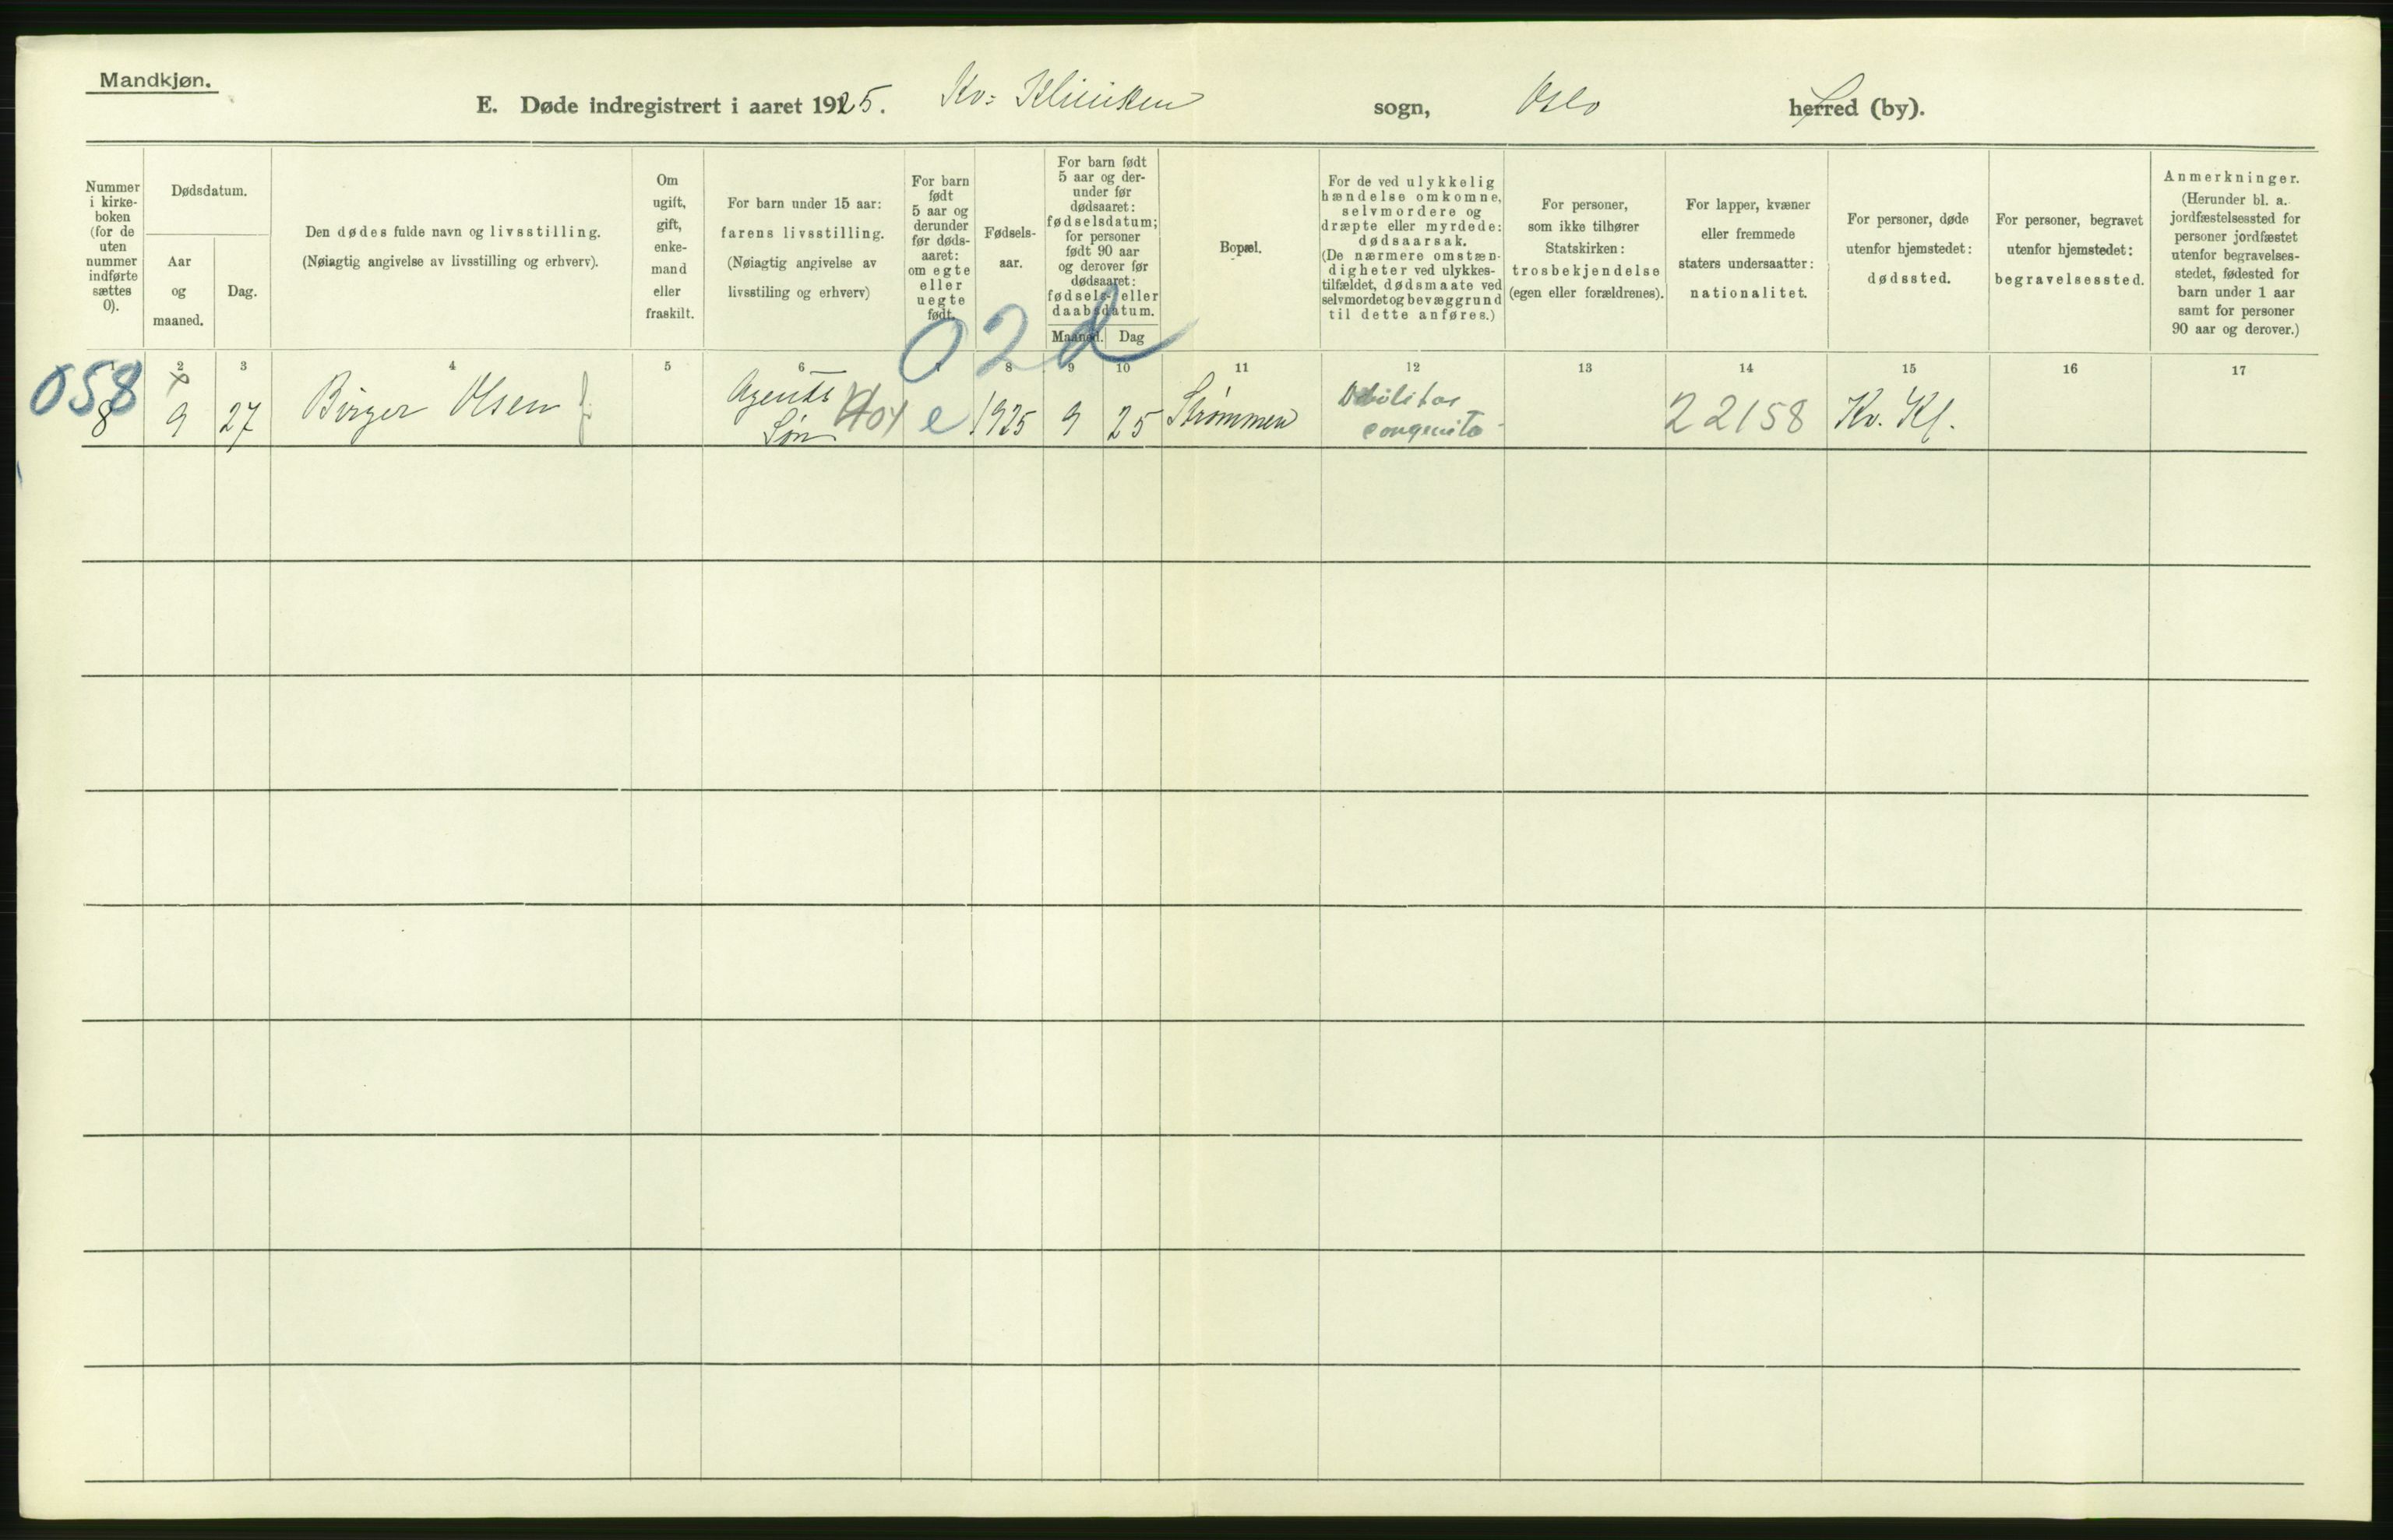 Mandkjøn.
E. Døde indregistrert i aaret 1925. Kv: Kliniken sogn, Oslo herred (by).
Nummer
i kirke-
boken
(for de
uten
nummer
indførte
sættes
0).
Dødsdatum.
Aar
og
maaned.
Dag.
Den dødes fulde navn og livsstilling.
(Nøiagtig angivelse av livsstilling og erhverv).
Om
ugift,
gift,
enke-
mand
eller
fraskilt.
For barn under 15 aar:
farens livsstilling.
(Nøiagtig angivelse av
livsstiling og erhverv)
For barn
født
5 aar og
derunder
før døds-
aaret:
om egte
eller
uegte
født.
Fødsels-
aar.
For barn født
5 aar og der-
under før
dødsaaret:
fødselsdatum;
for personer
født 90 aar
og derover før
dødsaaret:
fødsels- eller
daabsdatum.
Maaned. Dag
Bopæl.
For de ved ulykkelig
hændelse omkomne,
selvmordere og
dræpte eller myrdede:
dødsaarsak.
(De nærmere omstæn-
digheter ved ulykkes-
tilfældet, dødsmaate ved
selvmordet og bevæggrund
til dette anføres.)
For personer,
som ikke tilhører
Statskirken:
trosbekjendelse
(egen eller forældrenes).
For lapper, kvæner
eller fremmede
staters undersaatter:
nationalitet.
For personer, døde
utenfor hjemstedet:
dødssted.
For personer, begravet
utenfor hjemstedet:
begravelsessted.
Anmerkninger.
(Herunder bl. a.
jordfæstelsessted for
personer jordfæstet
utenfor begravelses-
stedet, fødested for
barn under 1 aar
samt for personer
90 aar og derover.)
02d
1 2 3 4 5 6 7 8 9 10 11 12 13 14 15 16 17
058
8 9 27 Birger Olsen
Agents
Søn
e 1925 9 25 Strømmen
Debilitas
congenita
22158 Kv. Kl.